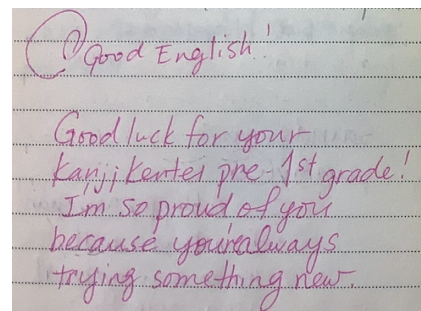 Good English!
Good luck for your
Kanji Kentei pre-1st grade!
I'm so proud of you
because you're always
trying something new.